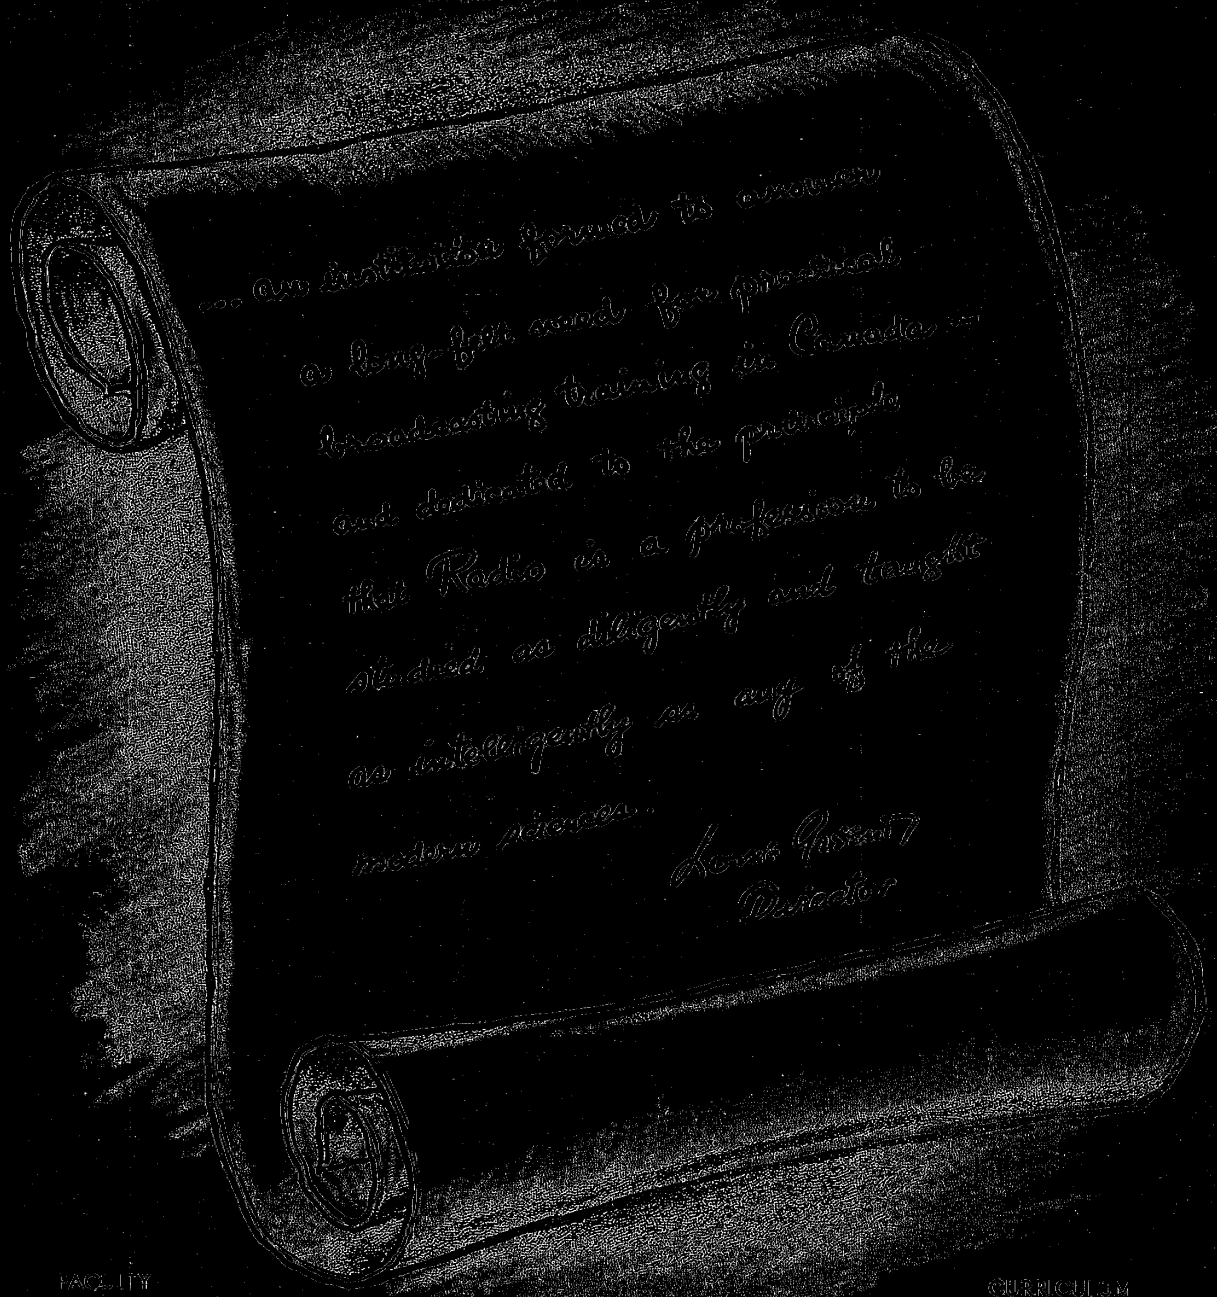 ... an institution formed to answer
a long-felt need for practical
broadcasting training in Canada ...
and dedicated to the principle
that Radio is a profession to be
studied as diligently and taught
as intelligently as any of the
modern sciences.
Lorne Greene
Director
FACULTY
CURRICULUM